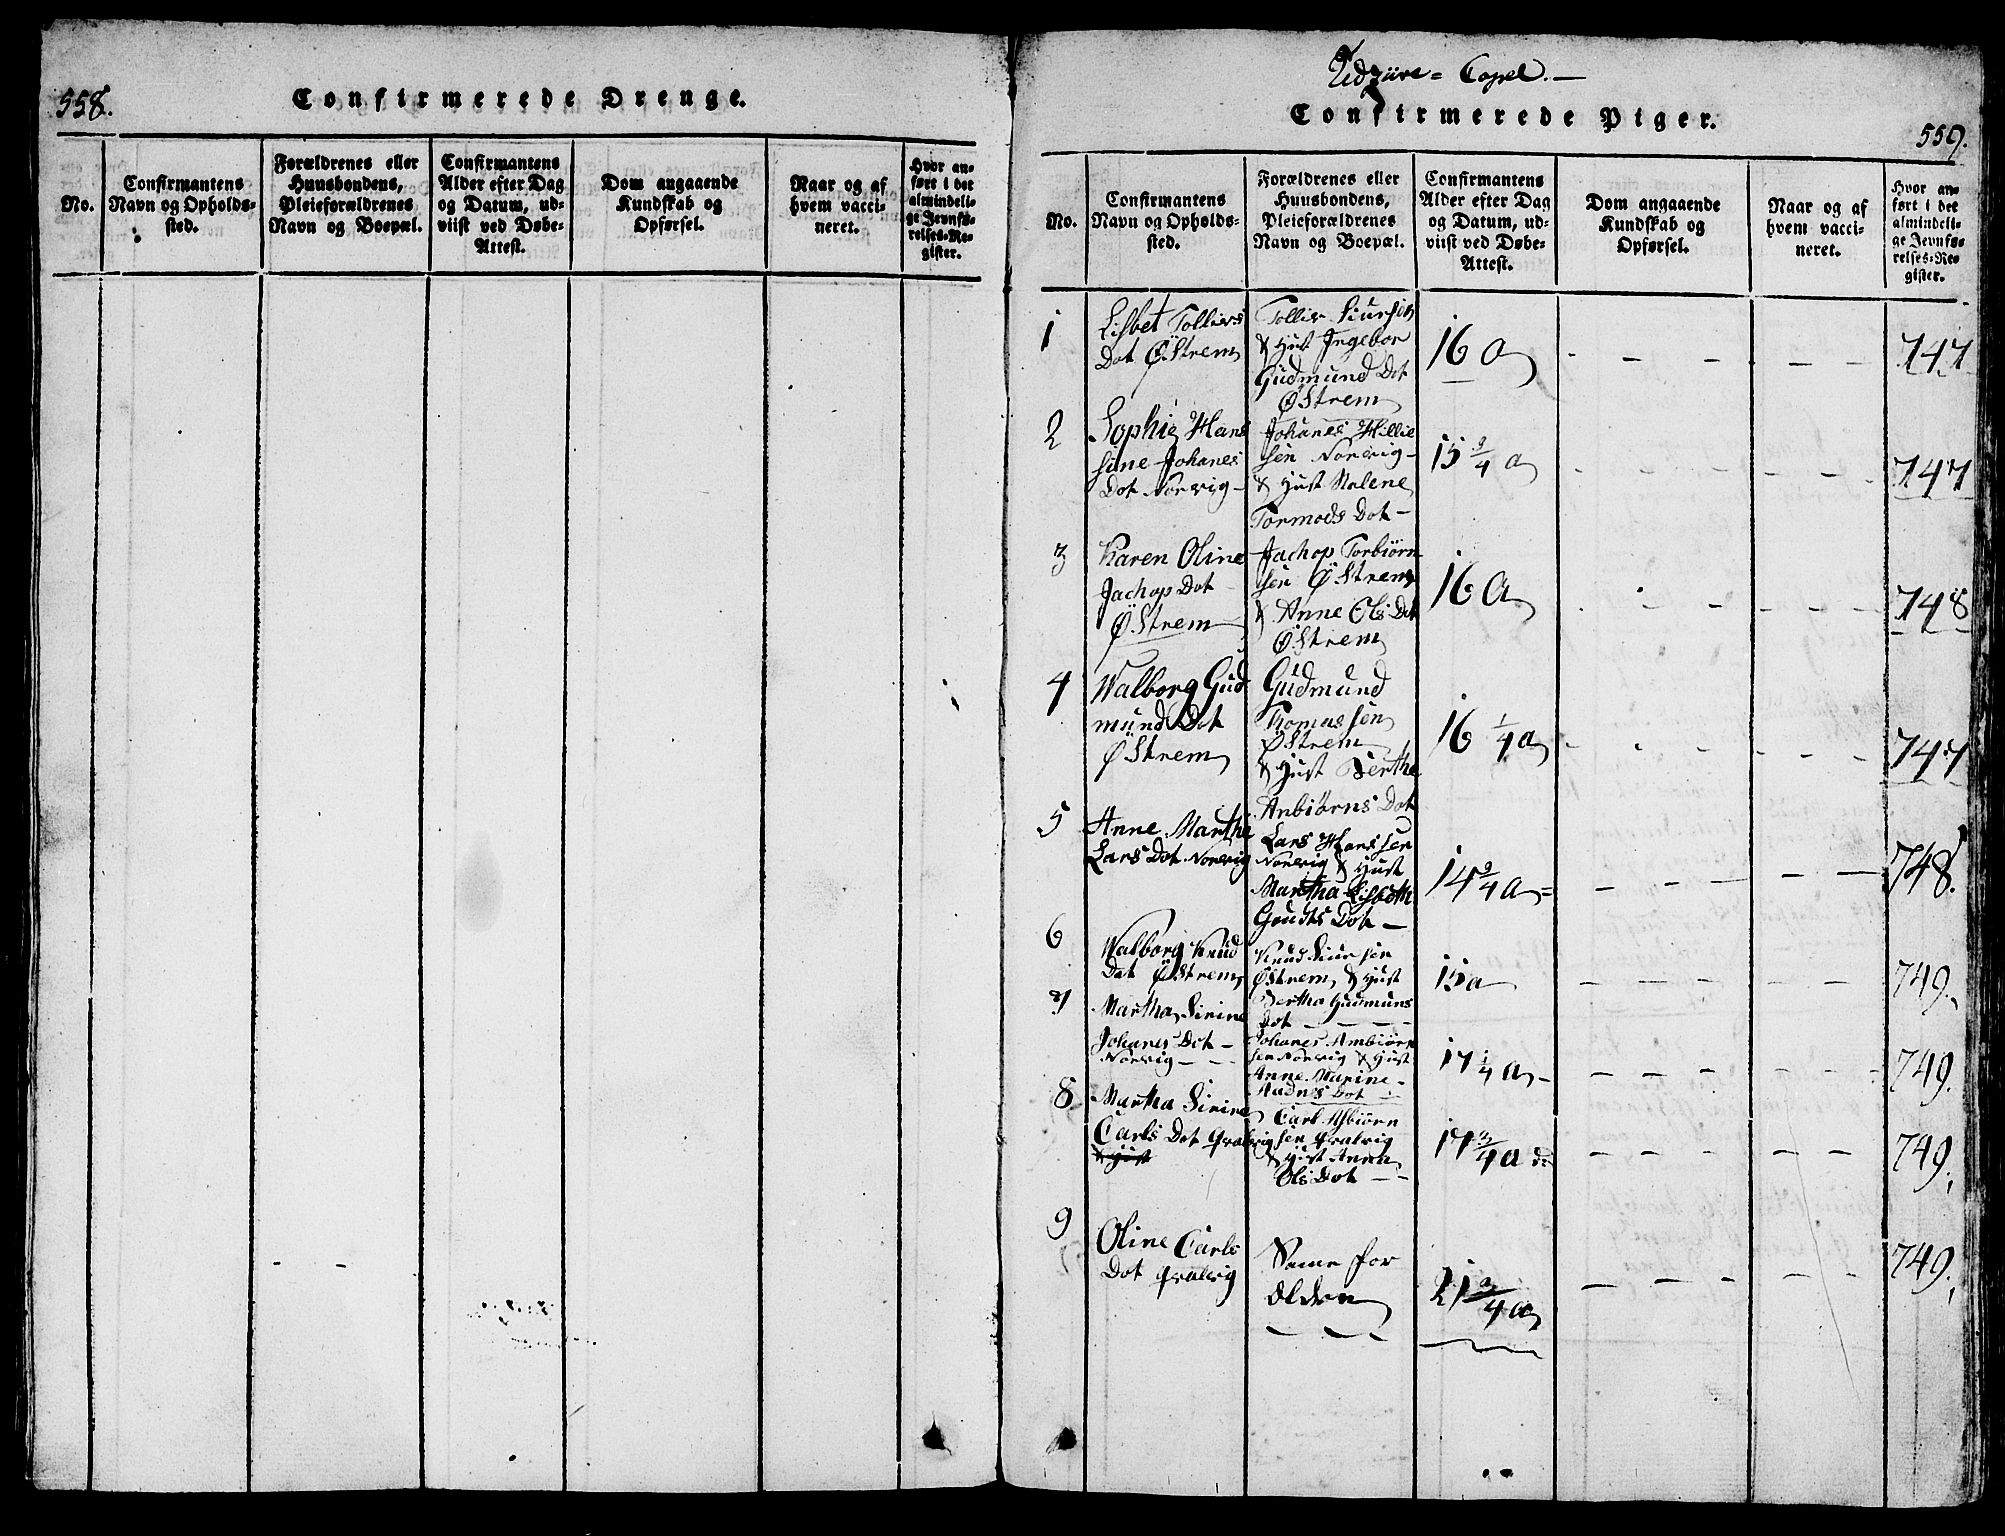 558.
Confirmerede Drenge.
No.
Confirmantens
Navn og Opholds-
sted.
Forældrenes eller
Huusbondens,
Pleieforældrenes
Navn og Boepæl.
Confirmantens
Alder efter Dag
og Datum, ud-
viist ved Døbe-
Attest.
Dom angaaende
Kundskab og
Opførsel.
Naar og af
hvem vacci-
neret.
Hvor an-
ført i det
almindeli-
ge Jevnfø-
relses-Re-
gister.
Udzüre = Capel. —
Confirmerede Piger.
559.
No.
Confirmantens
Navn og Opholds-
sted.
Forældrenes eller
Huusbondens,
Pleieforældrenes
Navn og Boepæl.
Confirmantens
Alder efter Dag
og Datum, ud-
viist ved Døbe-
Attest.
Dom angaaende
Kundskab og
Opførsel.
Naar og af
hvem vacci-
neret.
Hvor an-
ført i det
almindeli-
ge Jevnfø-
relses-Re-
gister.
1
Lisbet Tolliers
Dot Østrem
Tollier Siursen
& Hust Ingebor
Gudmund Dot
Østrem
16 a
747
2
Sophie Hans
sine Johanes
Dot Norvig -
Johanes Hillie
sen Norvig -
& Hust Malene
Tormods Dot -
15 3/4 a
747
3
Karen Oline
Jachop Dot
Østrem
Jachop Torbiørn
sen Østrem
& Anne Ols Dot
Østrem
16 a
748
4
Walborg Gud
mund Dot
Østrem
Gudmund
Thomassen
Østrem
& Hust Berthe
Anbiørns Dot
16 1/4 a
747
5
Anne Marthe
Lars Dot Norvig
Lars Hanssen
Norvig & Hust
Martha Lisbeth
Dot -
14 3/4 a
748.
6
Walborg Knud
Dot Østrem
Knud Siursen
Østrem & Hust
Bertha Gudmuns
Dot
15 a
749.
7
Martha Sirine
Johanes Dot -
Norvig - -
Johanes Ambiørn
sen Norvig & Hust
Anne Marine -
Audnes Dot -
17 1/4 a
749.
8
Martha Sirine
Carls Dot qvalvig
& Hust
Carl Asbiørn
sen qvalvig
& Hust Anna
Ols Dot - -
17 3/4 a
749.
9
Oline Carls
Dot qvalvig
Same for
ældre
21 3/4 a
749.